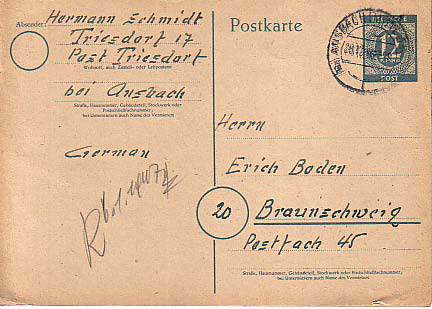 Absender:
Hermann Schmidt
Triesdorf 17
Post Triesdorf
Wohnort, auch Zustell- oder Leitpostamt
bei Ansbach
Straße, Hausnummer, Gebäudeteil, Stockwerk oder
Postschließfachnummer;
bei Untermietern auch Name des Vermieters
German
Postkarte
ANSBACH
12
POST
Herrn
Erich Boden
20
Braunschweig
Postfach 45
Straße, Hausnummer, Gebäudeteil, Stockwerk oder Postschließfachnummer;
bei Untermietern auch Name des Vermieters